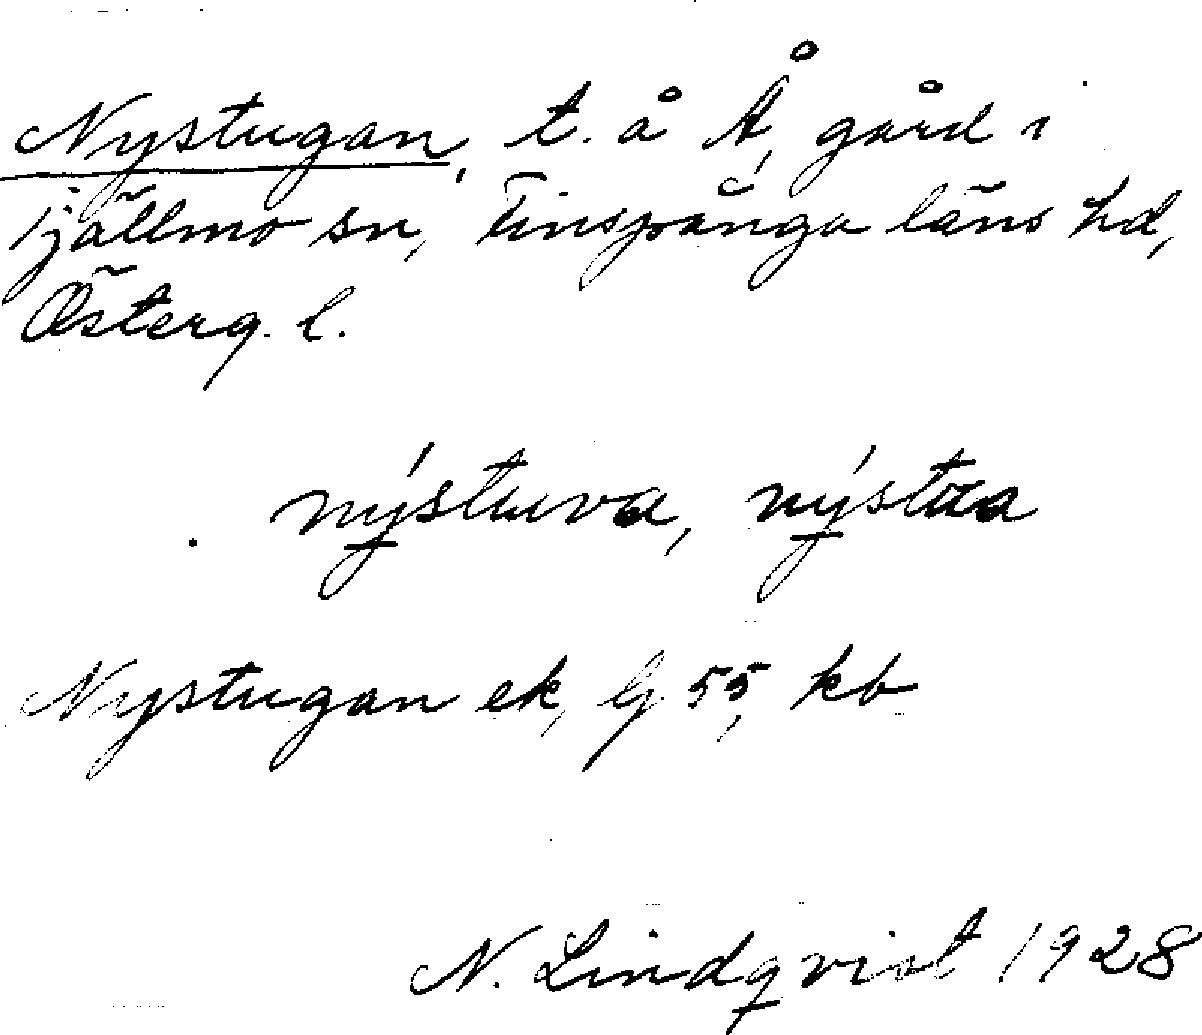 Nystugan, t. å Å, gård i
Tjällmo sn, Finspånga läns hd,
Österg. l.
nýstuva, nýstua
Nystugan ek, Gj 55, kb
N. Lindqvist 1928